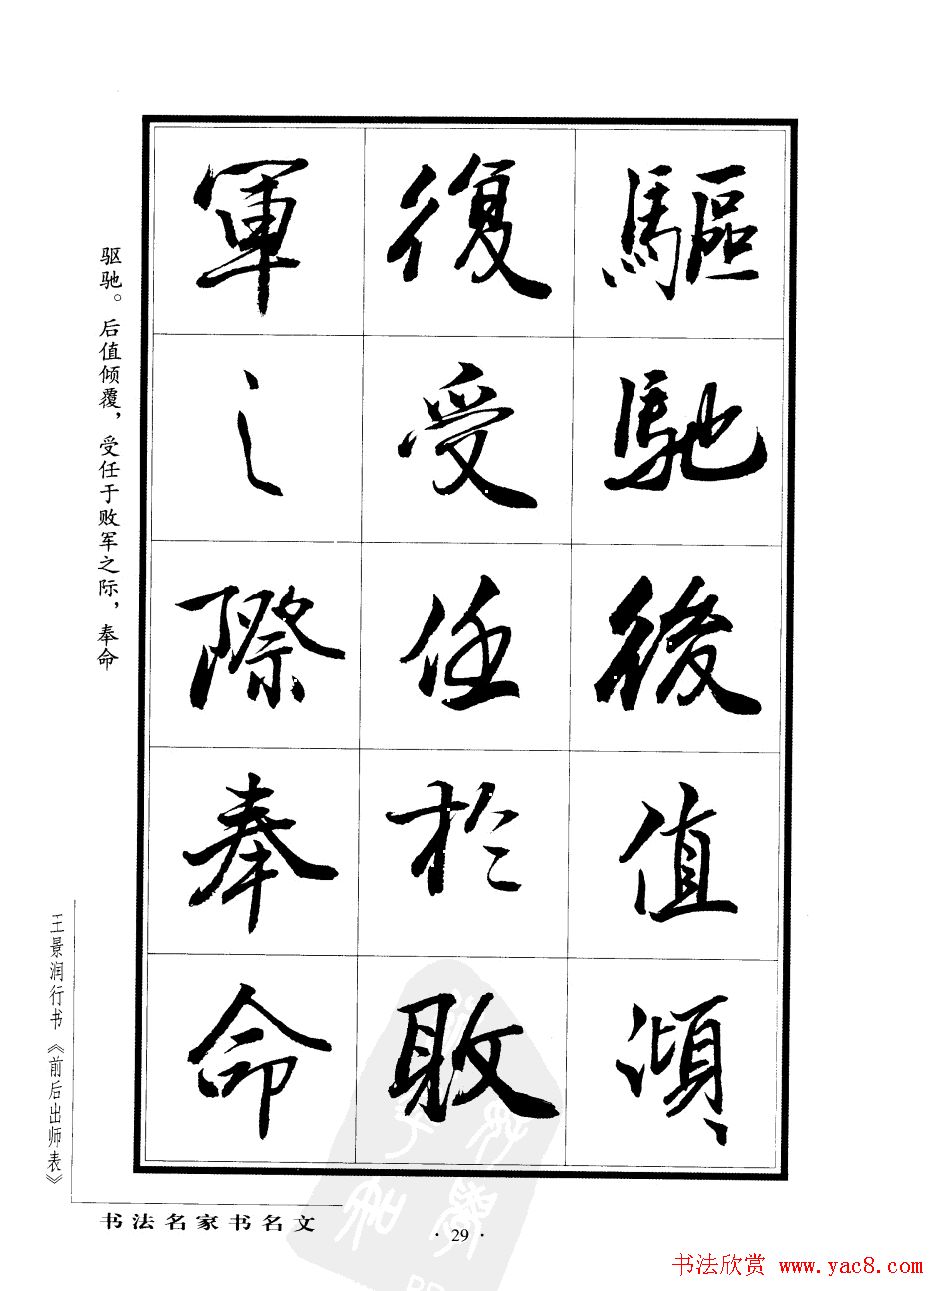 驅馳後值傾
復受任於敗
軍之際奉命
驱驰。后值倾覆，受任于败军之际，奉命
王景润行书《前后出师表》
书法名家书名文
· 29 ·
书法欣赏 www.yac8.com